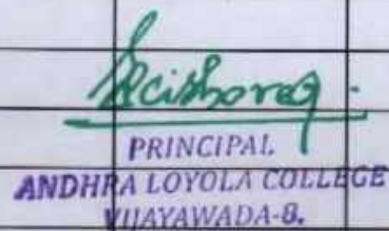 PRINCIPAL
ANDHRA LOYOLA COLLEGE
VIJAYAWADA-8.